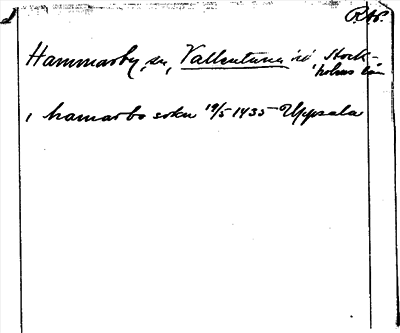 RAp.
Hammarby, sn, Vallentuna hd, Stock-
holms län
i hamarbo sokn 19/5 1435 Uppsala